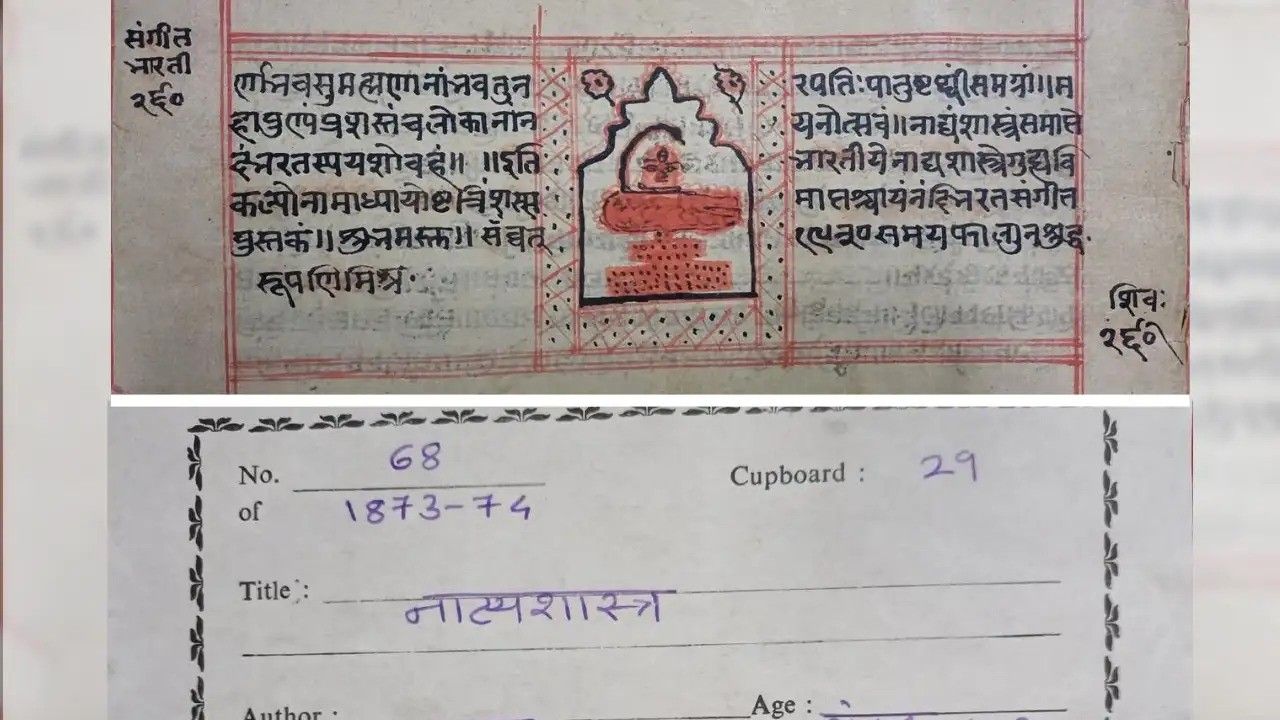 संगीत
भारती
२६०
र्णनिवसुमह्मणनांनवतुन
हापुण्यंप्रशस्तंचलोकानांन
स्यशोवहं॥ ॥इति
कल्पोनामाध्यायोष्टत्रिंशस्स
पुस्तकं॥ शुभमस्तु॥ संवत्
रूपणिमिश्र
रपतिःपातुपृथ्वींसमग्रां॥म
यनोत्सवं॥नाट्यंशास्त्रंसमाप्ते
भारतीयेनाट्यशास्त्रेगुह्यवि
माप्तश्चायंनंदिभरतसंगीत
समयफाल्गुनशुद्ध
शिवः
२६०
No. 68
of 1873-74
Cupboard : 29
Title : नाट्यशास्त्र
Author :
Age :